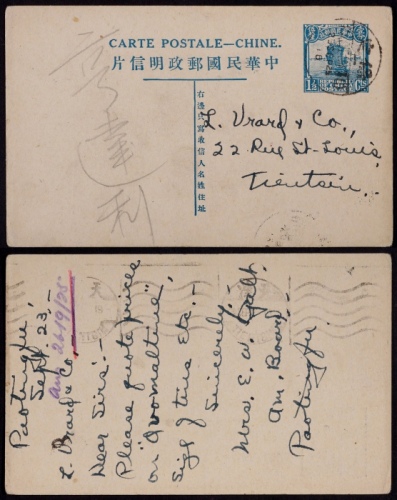 CARTE POSTALE—CHINE.
片信明政郵國民華中
1½ Cts
右邊只寫收信人名姓住址
亨達利
L. Vrard & Co.,
22 Rue St-Louis,
Tientsin.
Paotingfu,
Sept 23,
ans 26/9/25
L. Vrard & Co.
Dear Sirs:—
Please quote prices
on "Ovomaltine",
size of tins etc.—
Sincerely,
Mrs. E. W. Galt.
Am. Board
Paotingfu.